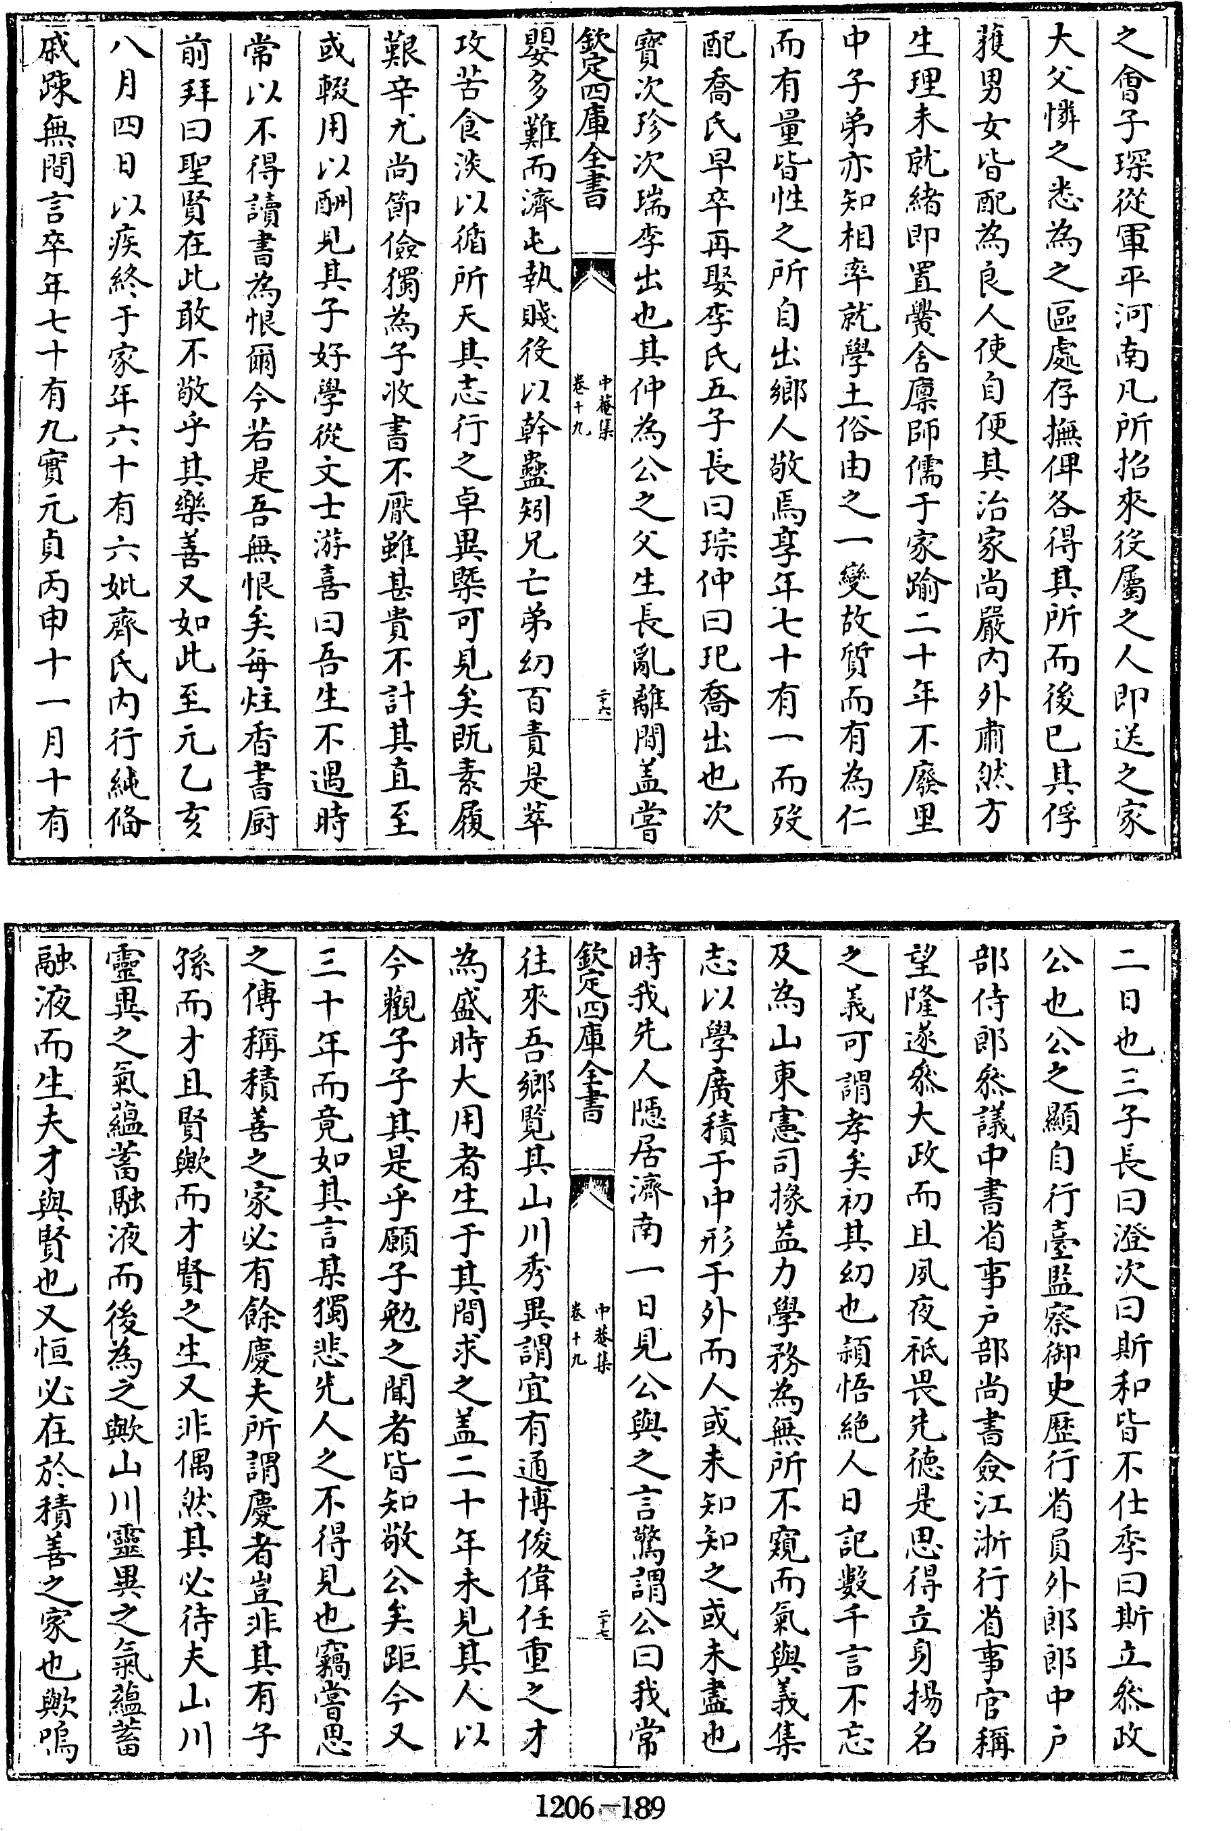 之會子琛從軍平河南凡所招來後屬之人即送之家
大父憐之悉為之區處存撫俾各得其所而後已其俘
獲男女皆配為良人使自便其治家尚嚴內外肅然方
生理未就緒即置黌舍廩師儒于家踰二十年不廢里
中子弟亦知相率就學土俗由之一變故質而有為仁
而有量皆性之所自出鄉人敬焉享年七十有一而歿
配喬氏早卒再娶李氏五子長曰琮仲曰玘喬出也次
寶次珍次瑞李出也其仲為公之父生長亂離間盖嘗
欽定四庫全書
中菴集
卷十九
二十六
嬰多難而濟屯執賤役以幹蠱矧兄亡弟幼百責是萃
攻苦食淡以循所天其志行之卓異槩可見矣既素履
艱辛尤尚節儉獨為子收書不厭雖甚貴不計其直至
或輟用以酬見其子好學從文士游喜曰吾生不遇時
常以不得讀書為恨爾今若是吾無恨矣每炷香書厨
前拜曰聖賢在此敢不敬乎其樂善又如此至元乙亥
八月四日以疾終于家年六十有六妣齊氏內行純備
戚踈無間言卒年七十有九實元貞丙申十一月十有
二日也三子長曰澄次曰斯和皆不仕季曰斯立叅政
公也公之顯自行臺監察御史歷行省員外郎郎中户
部侍郎叅議中書省事户部尚書僉江浙行省事官稱
望隆遂叅大政而且夙夜祗畏先德是思得立身揚名
之義可謂孝矣初其幼也頴悟絶人日記數千言不忘
及為山東憲司掾益力學務為無所不窺而氣與義集
志以學廣積于中形于外而人或未知知之或未盡也
時我先人隱居濟南一日見公與之言驚謂公曰我常
欽定四庫全書
中菴集
卷十九
二十七
往來吾鄉覧其山川秀異謂宜有通博俊偉任重之才
為盛時大用者生于其間求之盖二十年未見其人以
今觀子子其是乎願子勉之聞者皆知敬公矣距今又
三十年而竟如其言某獨悲先人之不得見也竊嘗思
之傳稱積善之家必有餘慶夫所謂慶者豈非其有子
孫而才且賢歟而才賢之生又非偶然其必待夫山川
靈異之氣藴蓄融液而後為之歟山川靈異之氣藴蓄
融液而生夫才與賢也又恒必在於積善之家也歟嗚
1206-189